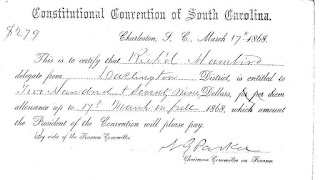 Constitutional Convention of South Carolina.
$279
Charleston, S. C., March 17th 1868.
This is to certify that Rich'd Humbird
delegate from Darlington District, is entitled to
Two Hundred & Seventy Nine Dollars, for per diem
allowance up to 17th March in full 1868, which amount
the President of the Convention will please pay.
By order of the Finance Committee.
N G Parker
Chairman Committee on Finance.